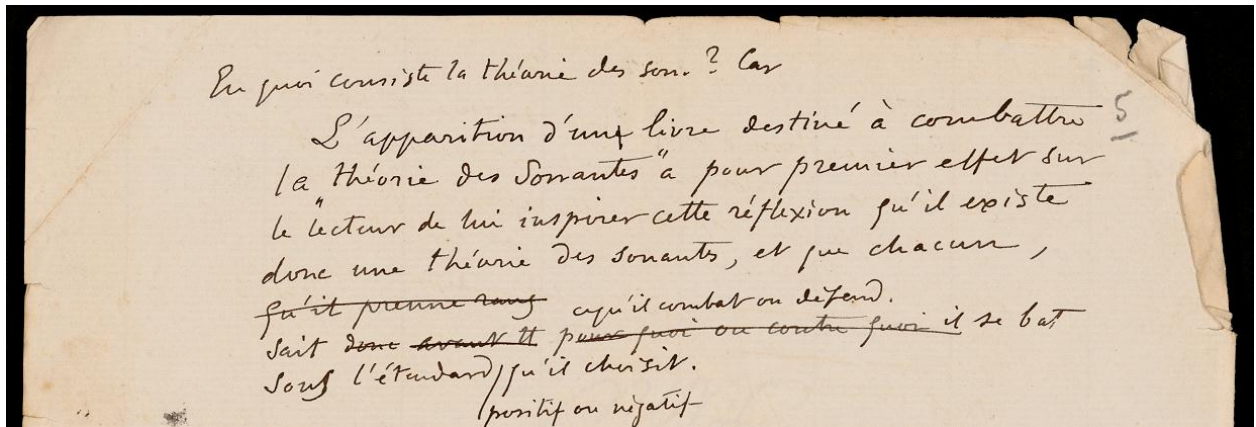 En quoi consiste la théorie des son. ? Car
5
L'apparition d'un livre destiné à combattre
la "théorie des Sonantes" a pour premier effet sur
le lecteur de lui inspirer cette réflexion qu'il existe
donc une théorie des sonantes, et que chacun,
qu'il prenne rang ce qu'il combat ou défend.
sait donc avant tt pour quoi ou contre quoi il se bat
sous l'étendard, qu'il choisit.
positif ou négatif